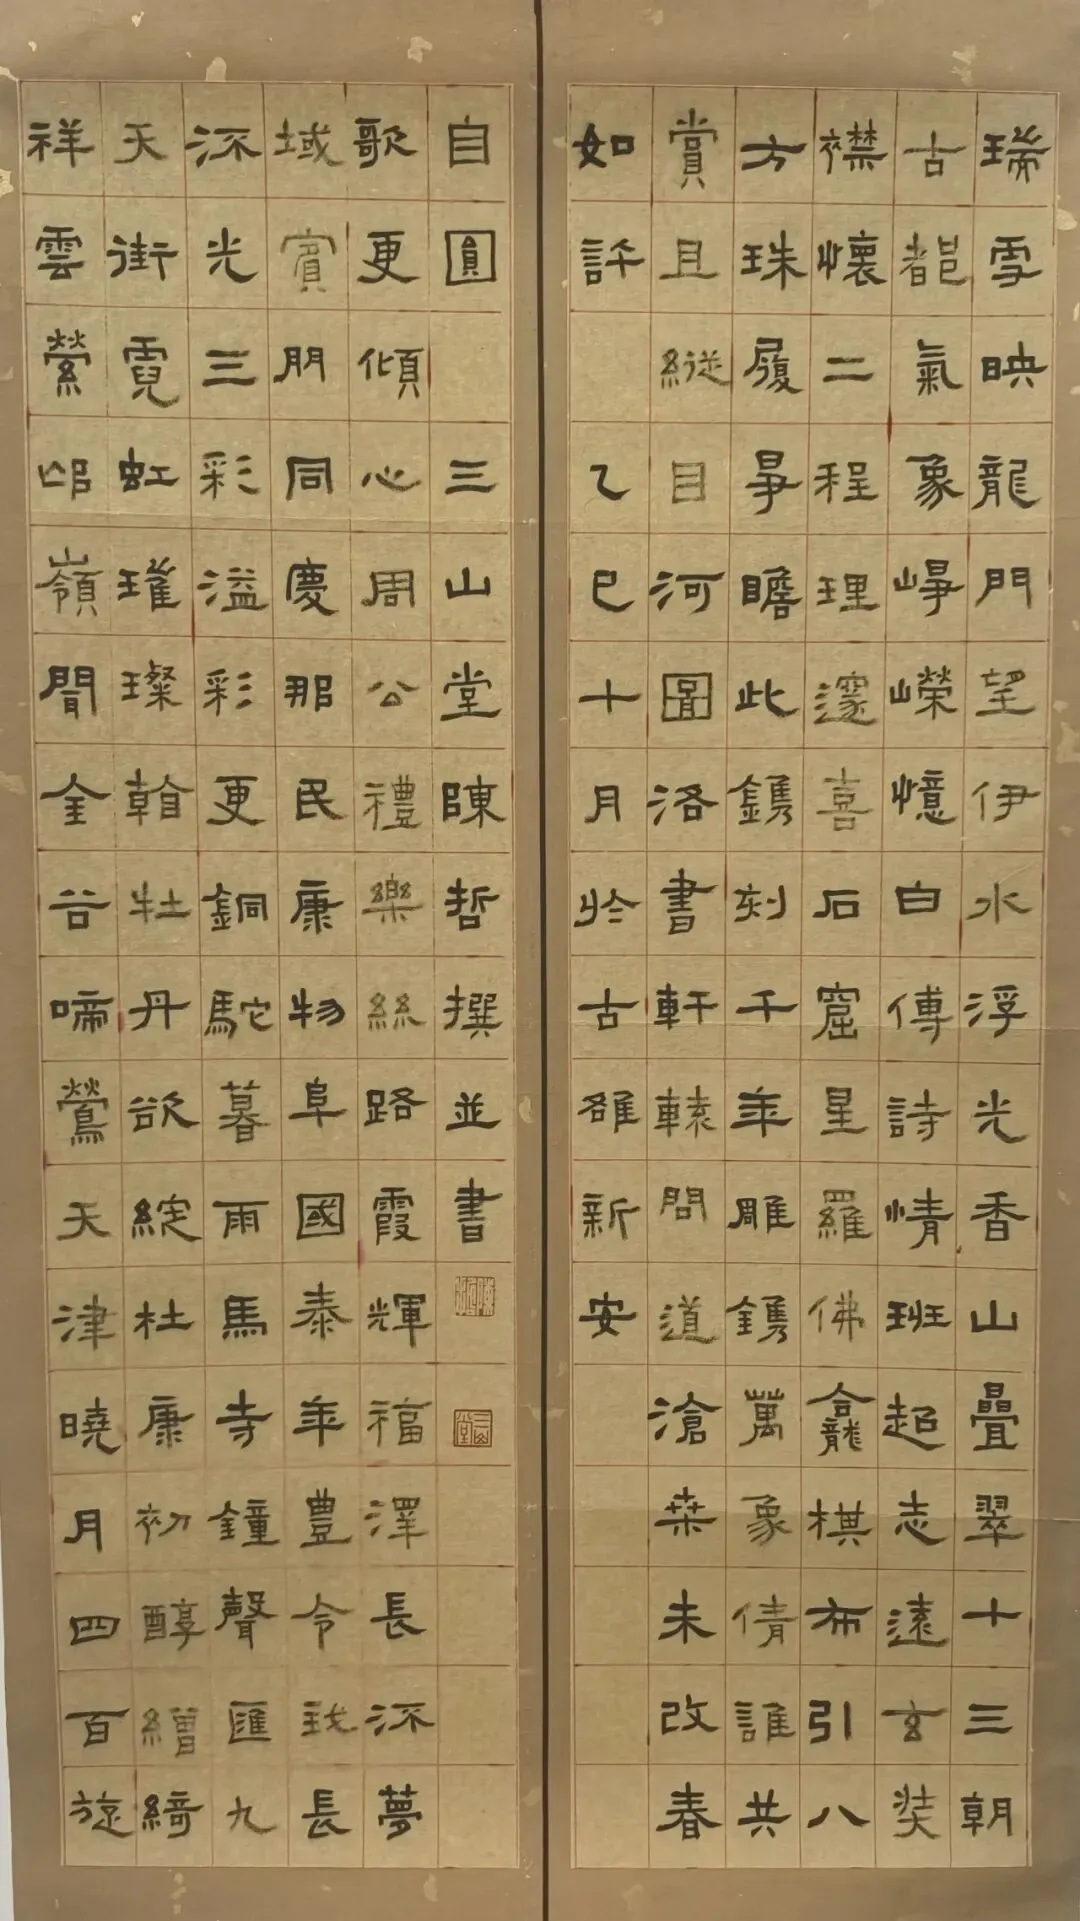 瑞雪映龍門望伊水浮光香山疊翠十三朝
古都氣象崢嶸憶白傅詩情班超志遠玄奘
襟懷二程理邃喜石窟星羅佛龕棋布引八
方珠履爭瞻此鐫刻千年雕鐫萬象倩誰共
賞且縱目河圖洛書軒轅問道滄桑未改春
如許 乙巳十月於古雒新安
祥雲縈邙嶺聞金谷啼鶯天津曉月四百旋
天街霓虹璀璨看牡丹欲綻杜康初醇繒綺
流光三彩溢彩更銅駝暮雨馬寺鐘聲匯九
域賓朋同慶那民康物阜國泰年豐令我長
歌更傾心周公禮樂絲路霞輝福澤長流夢
自圓 三山堂陳哲撰並書
三山堂